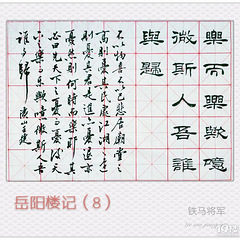 樂而樂歟噫
微斯人吾誰
與歸
不以物喜不以己悲居廟堂之
高則憂其民處江湖之遠
則憂其君是進亦憂退亦
憂然則何時而樂耶其
必曰先天下之憂而憂後天
下之樂而樂歟噫微斯人吾
誰與歸
岳阳楼记（8）
铁马将军